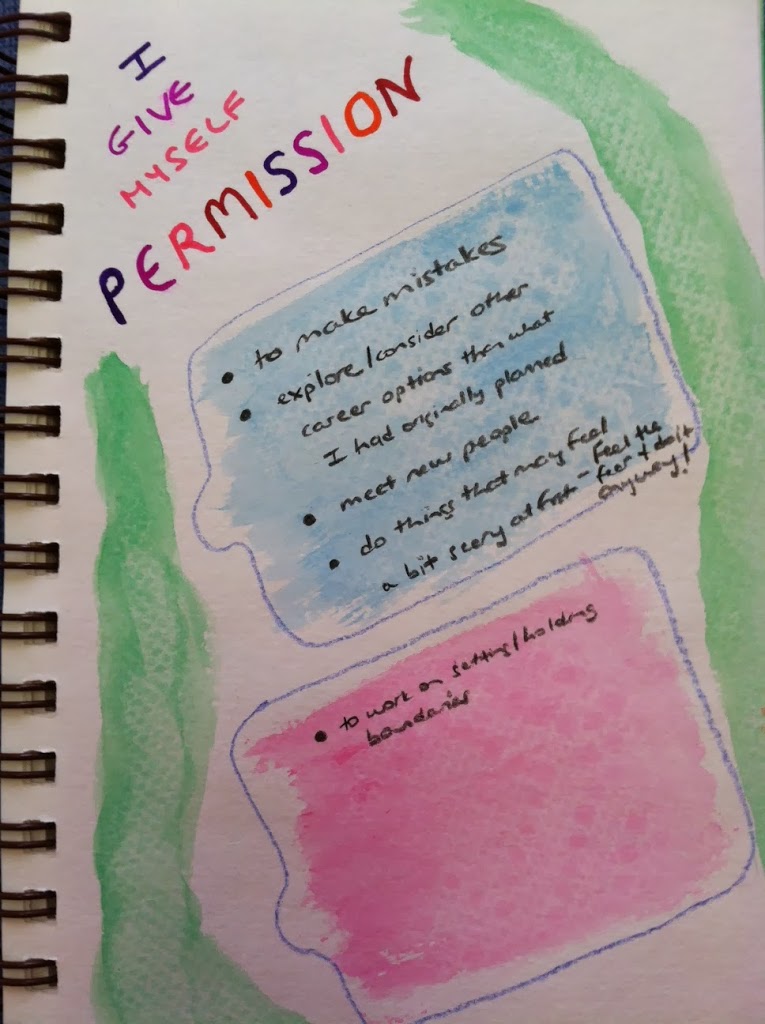 I
GIVE
MYSELF
PERMISSION
• to make mistakes
• explore/consider other
career options than what
I had originally planned
• meet new people
• do things that may feel
a bit scary at first - feel the
fear & do it
anyway!
• to work on setting/holding
boundaries